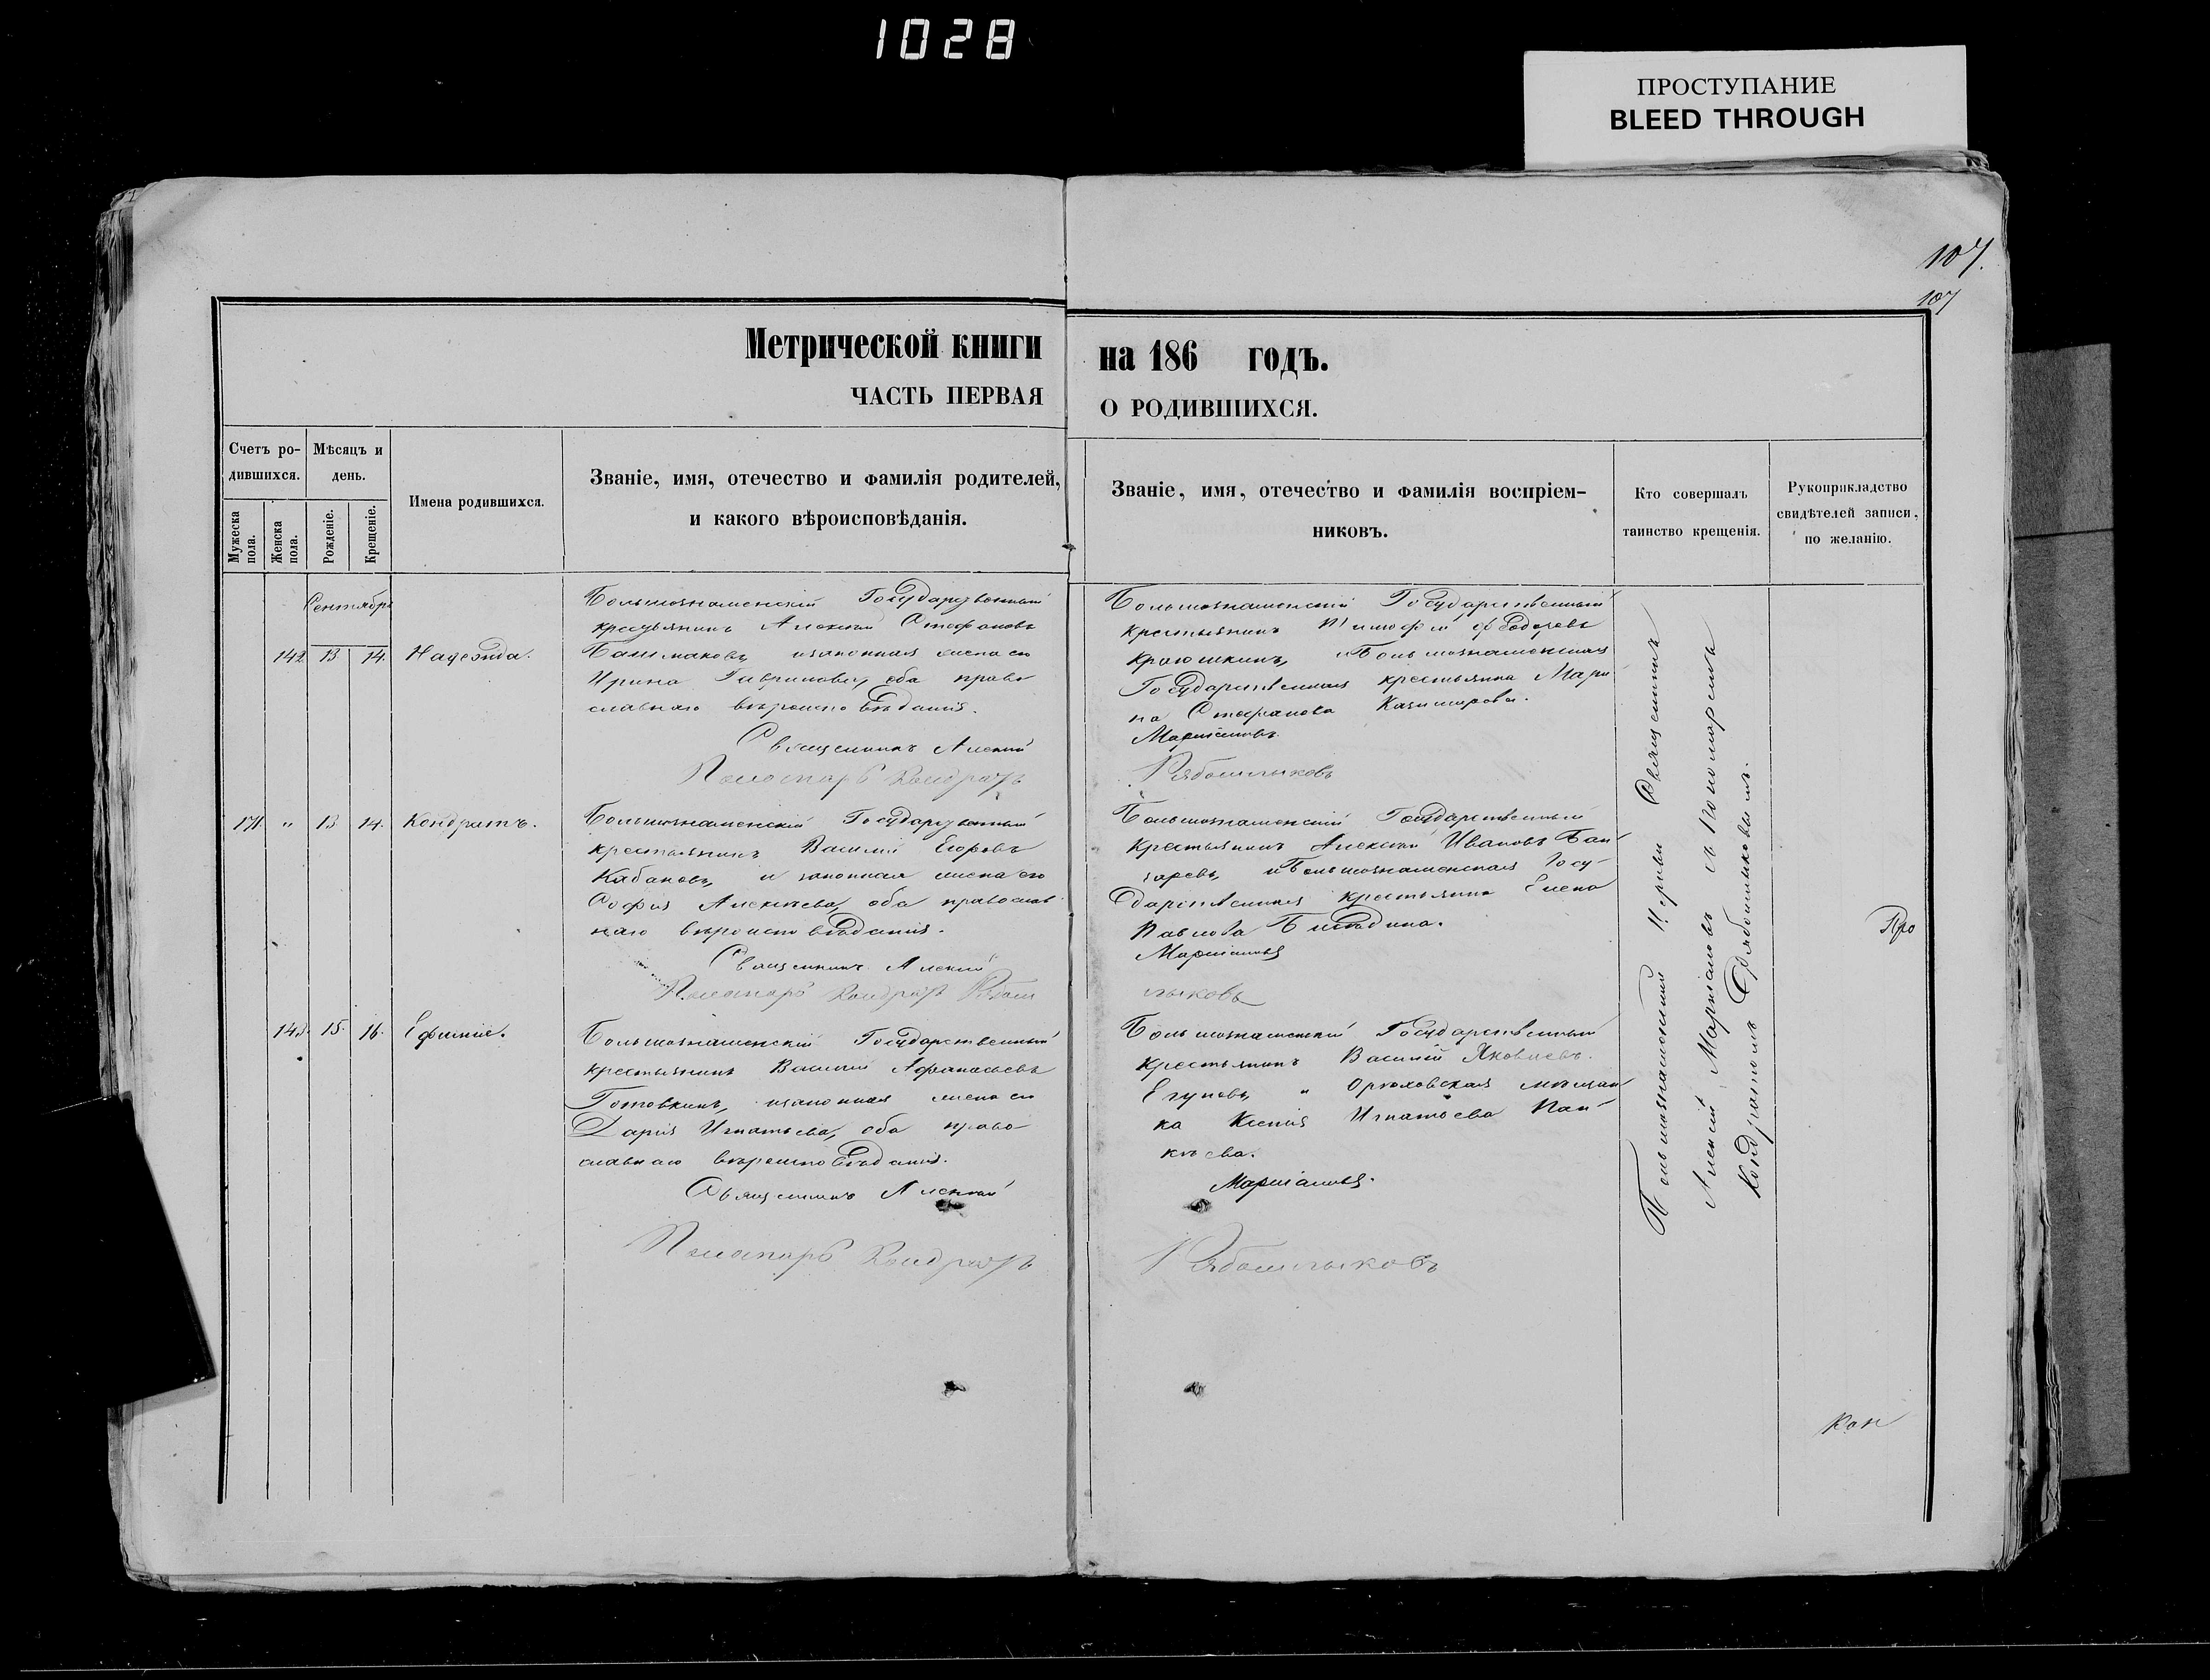 1028
ПРОСТУПАНИЕ
BLEED THROUGH
107.
107
Метрической книги на 186 годъ.
ЧАСТЬ ПЕРВАЯ О РОДИВШИХСЯ.
Счетъ родившихся.
Мужеска пола.
Женска пола.
Мѣсяцъ и день.
Рожденіе.
Крещеніе.
Имена родившихся.
Званіе, имя, отечество и фамилія родителей,
и какого вѣроисповѣданія.
Званіе, имя, отечество и фамилія воспріем-
никовъ.
Кто совершалъ
таинство крещенія.
Рукоприкладство
свидѣтелей записи,
по желанію.
Сентябрь
142 13 14. Надежда.
Большознаменскій Государственный
крестьянинъ Алексѣй Стефановъ
Башмаковъ, и законная жена его
Ирина Гаврилова, оба право
славнаго вѣроисповѣданія.
Священникъ Алексій
Пономарь Кондратъ
Большознаменскій Государственный
крестьянинъ Тимофей Ѳедоровъ
Краюшкинъ, и Большознаменская
Государственная крестьянка Мари
на Стефанова Казимирова.
Маршановъ
Рябошлыковъ
171. " 13. 14. Кондратъ.
Большознаменскій Государственный
крестьянинъ Василій Егоровъ
Кабановъ, и законная жена его
Софія Алексѣева, оба православ
наго вѣроисповѣданія.
Священникъ Алексій
Пономарь Кондратъ Рябош
Большознаменскій Государственный
крестьянинъ Алексѣй Ивановъ
и Большознаменская Госу-
дарственная крестьянка Елена
Павлова
Маршановъ
лыковъ
143. 15. 16. Ефиміе.
Большознаменскій Государственный
крестьянинъ Василій Афанасьевъ
Готовкинъ, и законная жена его
Дарія Игнатьева, оба право
славнаго вѣроисповѣданія.
Священникъ Алексій
Пономарь Кондратъ
Большознаменскій Государственный
крестьянинъ Василій Яковлевъ.
Егуновъ, " Орѣховская мѣщан
ка Ксенія Игнатьева Пан-
кѣева.
Маршановъ.
Рябошлыковъ
Большознаменскій Церкви Священникъ
Алексій Маршановъ съ Пономаремъ
Кондратомъ Рябошлыковымъ.
Про
Кон